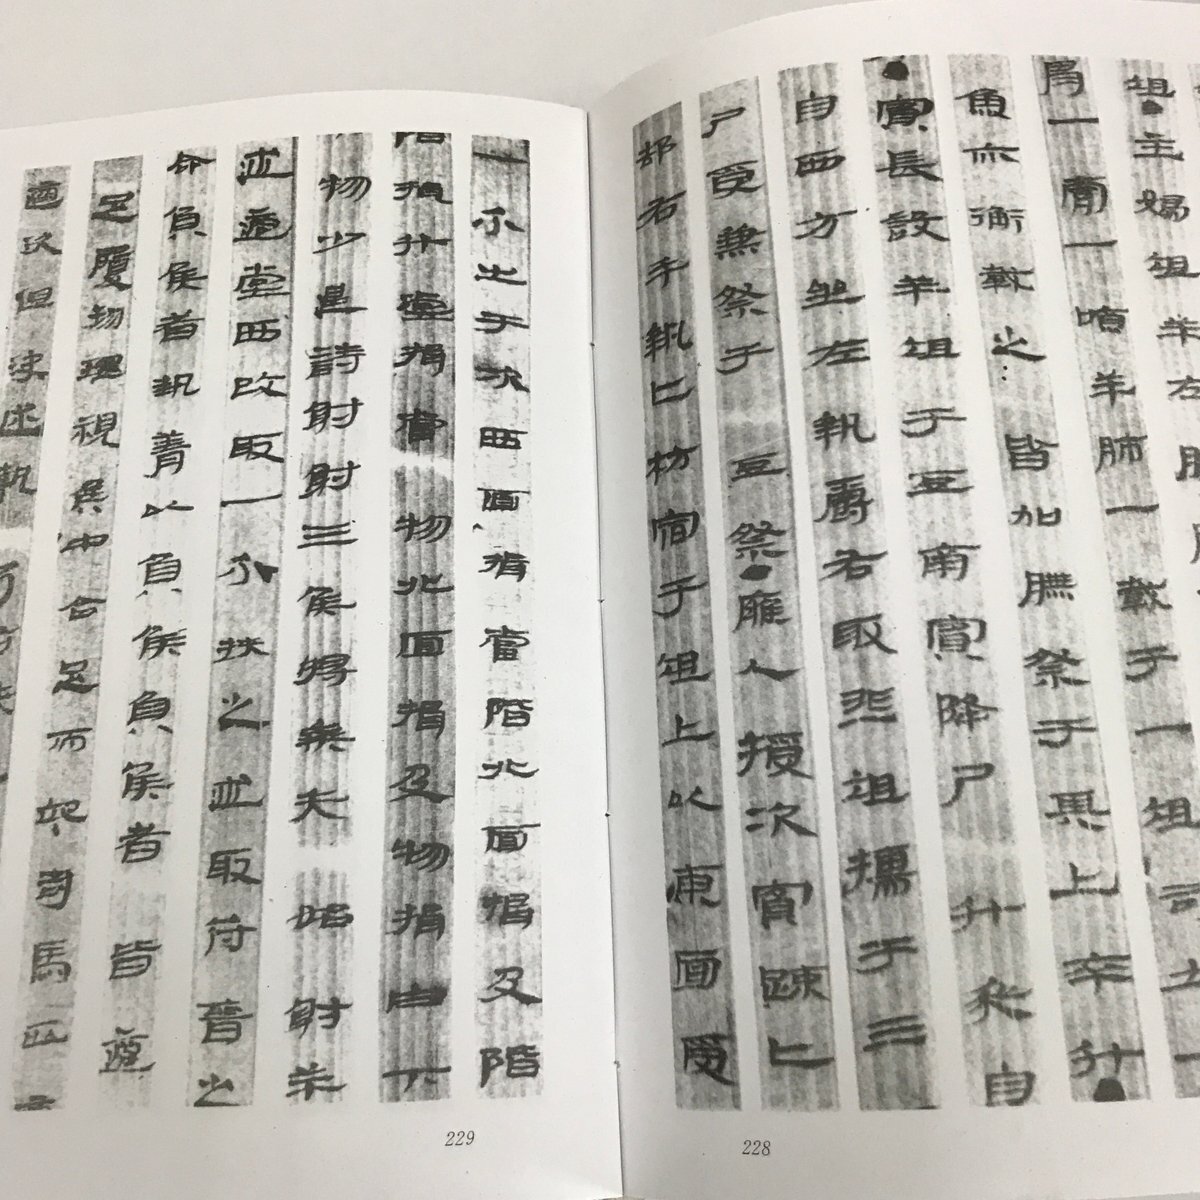 俎●主婦俎羊左
一胃一嚌羊肺一載于一俎司士
魚亦衡載之皆加膴祭于其上卒升●
●賓長設羊俎于豆南賓降尸升筵自
自西方坐左執爵右取韭俎擩于三
尸受兼祭于豆祭●雍人授次賓疏匕
郤右手執匕枋宿于俎上以東面受
一个出于次西面揖當階北面揖及階
階揖升堂揖當物北面揖及物揖由下
物少退誘射射三侯將乘矢始射
並適堂西改取一个挾之並取晉之
命負侯者執青以負侯負侯者皆適
足履物還視侯中合足而司馬正
適次但決述執
229
228